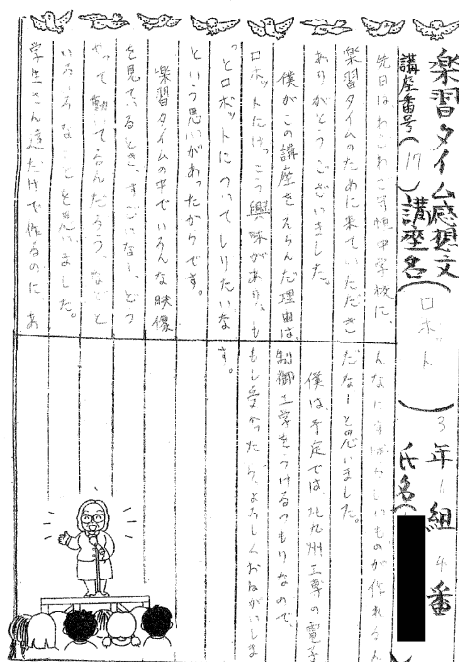 楽習タイム感想文 3年1組4番
講座番号(17)講座名(ロボット)氏名(
先日はわざわざ中学校に、
楽習タイムのために来ていただき
ありがとうございました。
僕がこの講座をえらんだ理由は、
ロボットにけっこう興味があり、も
っとロボットについてしりたいな
という思いがあったからです。
楽習タイムの中でいろんな映像
を見ているとき、すごいなー、どう
やって動いてるんだろう、などと
いろいろなことを思いました。
学生さん達だけで作るのに、あ
んなにすばらしいものが作れるん
だなーと思いました。
僕は、予定では北九州工専の電子
制御工学をうけるつもりなので、
もし受かったら、よろしくおねがいしま
す。